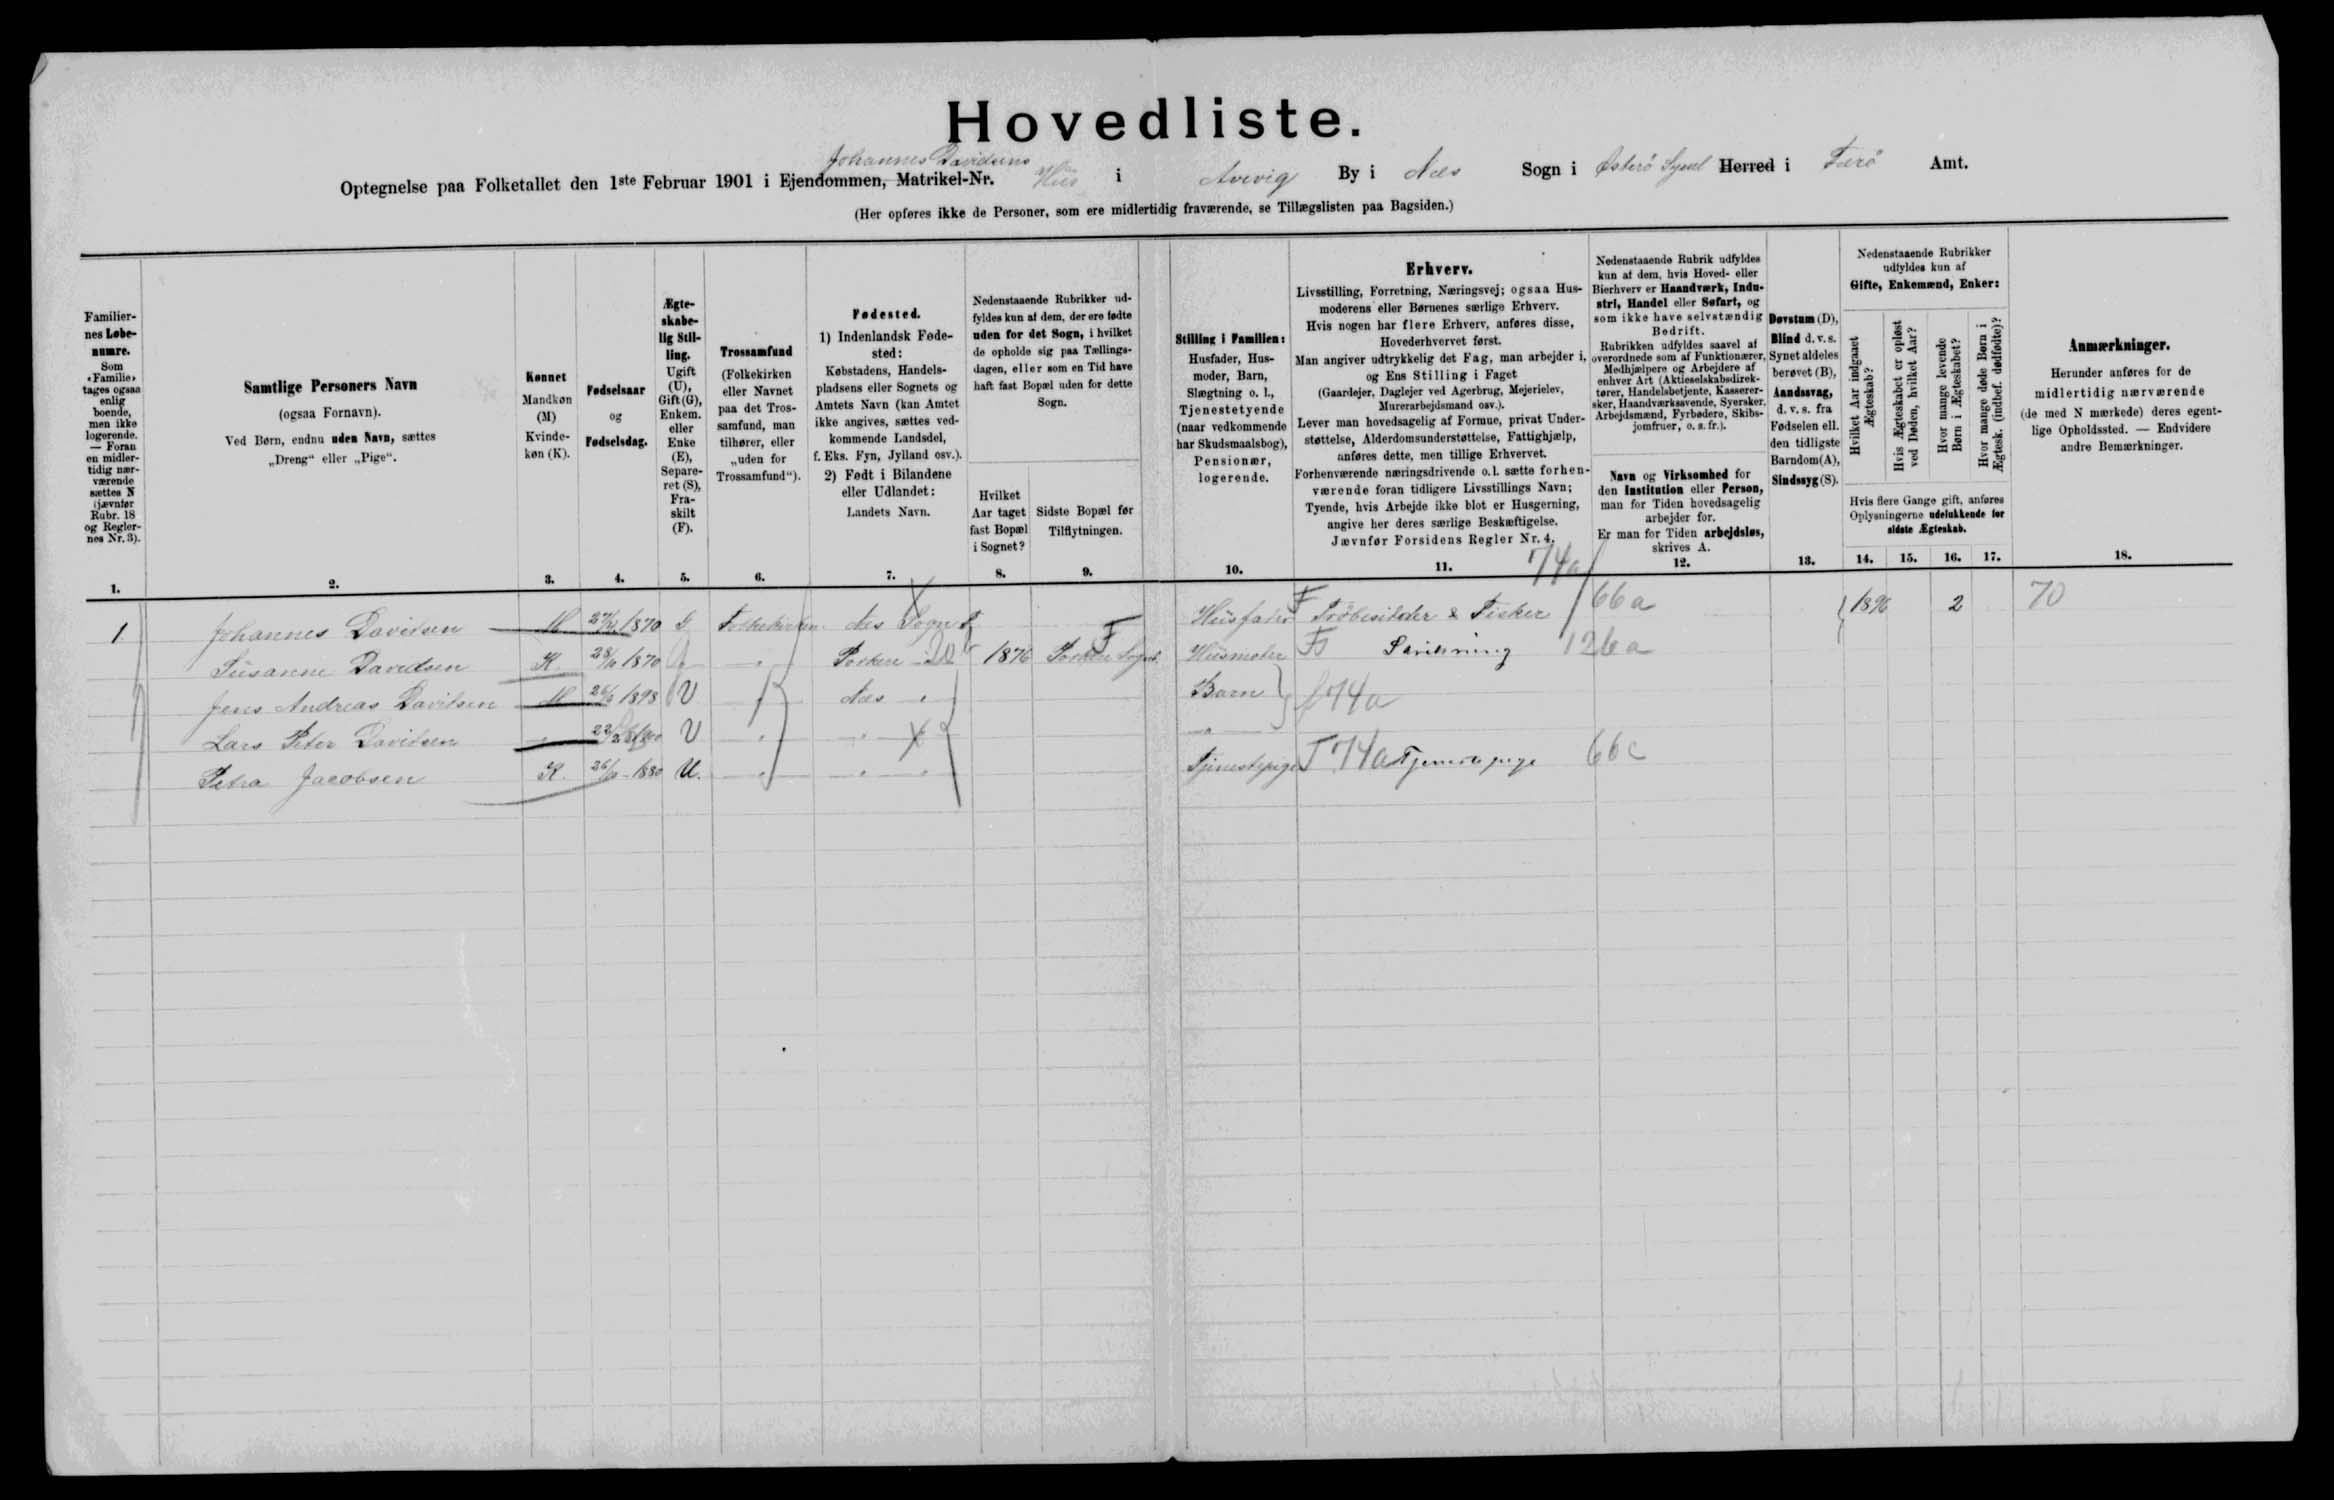 Hovedliste.
Johannes Davidsens
Optegnelse paa Folketallet den 1ste Februar 1901 i Ejendommen, Matrikel-Nr. Hus i Avevig By i Næs Sogn i Østerø Syssel Herred i Færø Amt.
(Her opføres ikke de Personer, som ere midlertidig fraværende, se Tillægslisten paa Bagsiden.)
Familier-
nes Løbe-
numre.
Som
«Familie»
tages ogsaa
enlig
boende,
men ikke
logerende.
— Foran
en midler-
tidig nær-
værende
sættes N
(jævnfør
Rubr. 18
og Regler-
nes Nr. 3).
1.
Samtlige Personers Navn
(ogsaa Fornavn).
Ved Børn, endnu uden Navn, sættes
„Dreng“ eller „Pige“.
2.
Kønnet
Mandkøn
(M)
Kvinde-
køn (K).
3.
Fødselsaar
og
Fødselsdag.
4.
Ægte-
skabe-
lig Stil-
ling.
Ugift
(U),
Gift (G),
Enkem.
eller
Enke
(E),
Separe-
ret (S),
Fra-
skilt
(F).
5.
Trossamfund
(Folkekirken
eller Navnet
paa det Tros-
samfund, man
tilhører, eller
„uden for
Trossamfund“).
6.
Fødested.
1) Indenlandsk Føde-
sted:
Købstadens, Handels-
pladsens eller Sognets og
Amtets Navn (kan Amtet
ikke angives, sættes ved-
kommende Landsdel,
f. Eks. Fyn, Jylland osv.).
2) Født i Bilandene
eller Udlandet:
Landets Navn.
7.
Nedenstaaende Rubrikker ud-
fyldes kun af dem, der ere fødte
uden for det Sogn, i hvilket
de opholde sig paa Tællings-
dagen, eller som en Tid have
haft fast Bopæl uden for dette
Sogn.
Hvilket
Aar taget
fast Bopæl
i Sognet?
8.
Sidste Bopæl før
Tilflytningen.
9.
Stilling i Familien:
Husfader, Hus-
moder, Barn,
Slægtning o. l.,
Tjenestetyende
(naar vedkommende
har Skudsmaalsbog),
Pensionær,
logerende.
10.
Erhverv.
Livsstilling, Forretning, Næringsvej; ogsaa Hus-
moderens eller Børnenes særlige Erhverv.
Hvis nogen har flere Erhverv, anføres disse,
Hovederhvervet først.
Man angiver udtrykkelig det Fag, man arbejder i,
og Ens Stilling i Faget
(Gaardejer, Daglejer ved Agerbrug, Mejerielev,
Murerarbejdsmand osv.).
Lever man hovedsagelig af Formue, privat Under-
støttelse, Alderdomsunderstøttelse, Fattighjælp,
anføres dette, men tillige Erhvervet.
Forhenværende næringsdrivende o. l. sætte forhen-
værende foran tidligere Livsstillings Navn;
Tyende, hvis Arbejde ikke blot er Husgerning,
angive her deres særlige Beskæftigelse.
Jævnfør Forsidens Regler Nr. 4.
11.
Nedenstaaende Rubrik udfyldes
kun af dem, hvis Hoved- eller
Bierhverv er Haandværk, Indu-
stri, Handel eller Søfart, og
som ikke have selvstændig
Bedrift.
Rubrikken udfyldes saavel af
overordnede som af Funktionærer,
Medhjælpere og Arbejdere af
enhver Art (Aktieselskabsdirek-
tører, Handelsbetjente, Kasserer-
sker, Haandværkssvende, Syersker,
Arbejdsmænd, Fyrbødere, Skibs-
jomfruer, o. s. fr.).
Navn og Virksomhed for
den Institution eller Person,
man for Tiden hovedsagelig
arbejder for.
Er man for Tiden arbejdsløs,
skrives A.
12.
Døvstum (D),
Blind d. v. s.
Synet aldeles
berøvet (B),
Aandssvag,
d. v. s. fra
Fødselen ell.
den tidligste
Barndom (A),
Sindssyg (S).
13.
Nedenstaaende Rubrikker
udfyldes kun af
Gifte, Enkemænd, Enker:
Hvilket Aar indgaaet
Ægteskab?
Hvis Ægteskabet er opløst
ved Døden, hvilket Aar?
Hvor mange levende
Børn i Ægteskabet?
Hvor mange døde Børn i
Ægtesk. (indbef. dødfødte)?
Hvis flere Gange gift, anføres
Oplysningerne udelukkende for
sidste Ægteskab.
14. 15. 16. 17.
Anmærkninger.
Herunder anføres for de
midlertidig nærværende
(de med N mærkede) deres egent-
lige Opholdssted. — Endvidere
andre Bemærkninger.
18.
74a
1 Johannes Davidsen M 1870 G Folkekirken Næs Sogn Husfader F Trøbesidder & Fisker 66a 1896 2 70
Susanne Davidsen K 1870 G " Porkere Do 1876 Porkere Sogn Husmoder 126a
Jens Andreas Davidsen M 1898 U " Næs " Barn f 74a
Lars Peter Davidsen " U " " " "
Petra Jacobsen K. 1880 U. " " " Tjenestepige T 74a Tjenestepige 66c